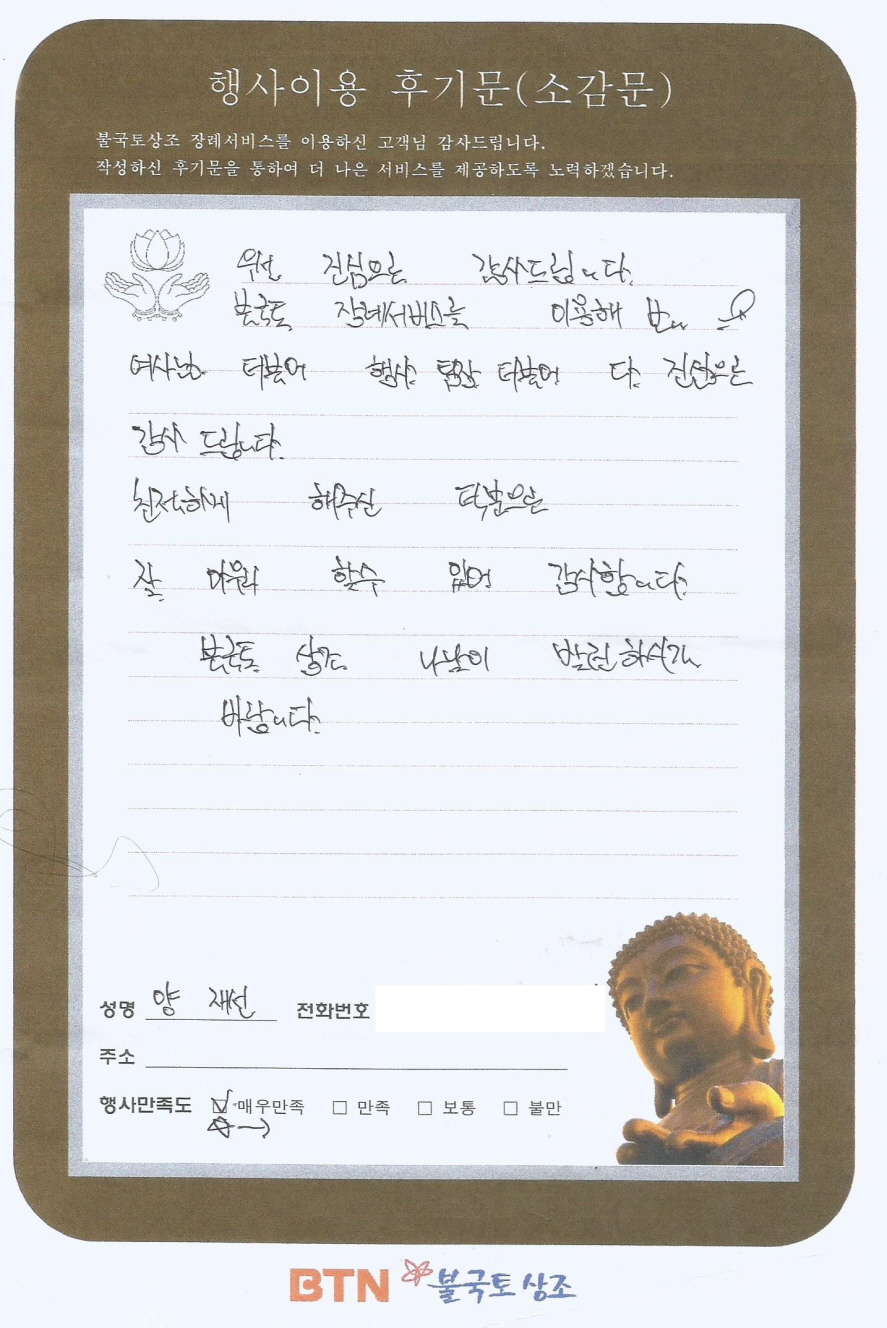 행사이용 후기문(소감문)
불국토상조 장례서비스를 이용하신 고객님 감사드립니다.
작성하신 후기문을 통하여 더 나은 서비스를 제공하도록 노력하겠습니다.
우선 진심으로 감사드립니다.
불국토 장례서비스를 이용해
여사님 더불어 행사 팀장 더불어 다 진심으로
감사 드립니다.
친절하게 해주신 덕분으로
잘 마무리 할수 있어 감사합니다.
불국토 상조 나날이 발전하시기
바랍니다.
성명 양 재선 전화번호
주소
행사만족도 매우만족 만족 보통 불만
BTN 불국토상조